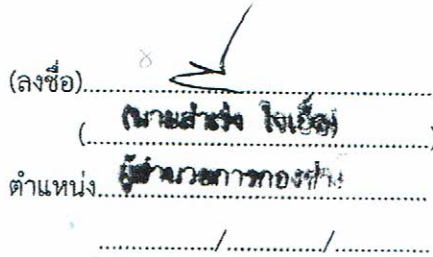 (ลงชื่อ)........................................................
(นายสำเริง ใจเอื้อ)
(........................................................)
ตำแหน่ง ผู้อำนวยการกองช่าง
................/................/................